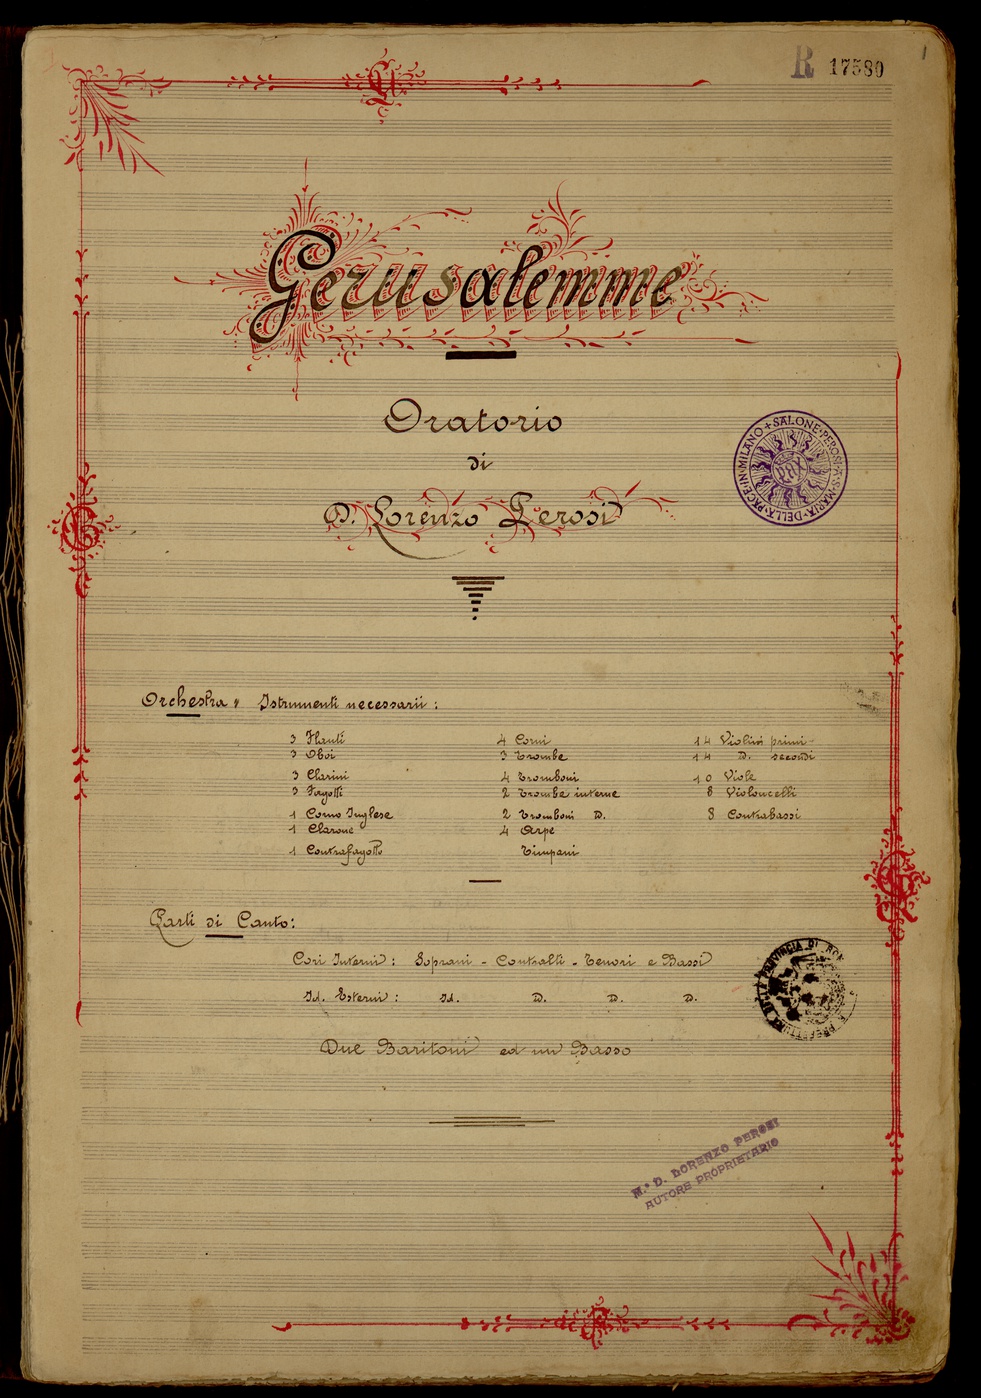 R 17580
1
Gerusalemme
Oratorio
di
D. Lorenzo Perosi
SALONE·PEROSI·A·S·MARIA·DELLA·PACE·IN·MILANO
Orchestra " Istrumenti necessarii :
3 Flauti 4 Corni 14 Violini primi
3 Oboi 3 Trombe 14 D. secondi
3 Clarini 4 Tromboni 10 Viole
3 Fagotti 2 Trombe interne 8 Violoncelli
1 Corno Inglese 2 Tromboni D. 8 Contrabassi
1 Clarone 4 Arpe
1 Contrafagotto Timpani
Parti di Canto:
Cori Interni : Soprani - Contralti - Tenori e Bassi
Id. Esterni : Id. D. D. D.
PREFETTURA DELLA PROVINCIA DI
Due Baritoni ed un Basso
M.° D. LORENZO PEROSI
AUTORE PROPRIETARIO